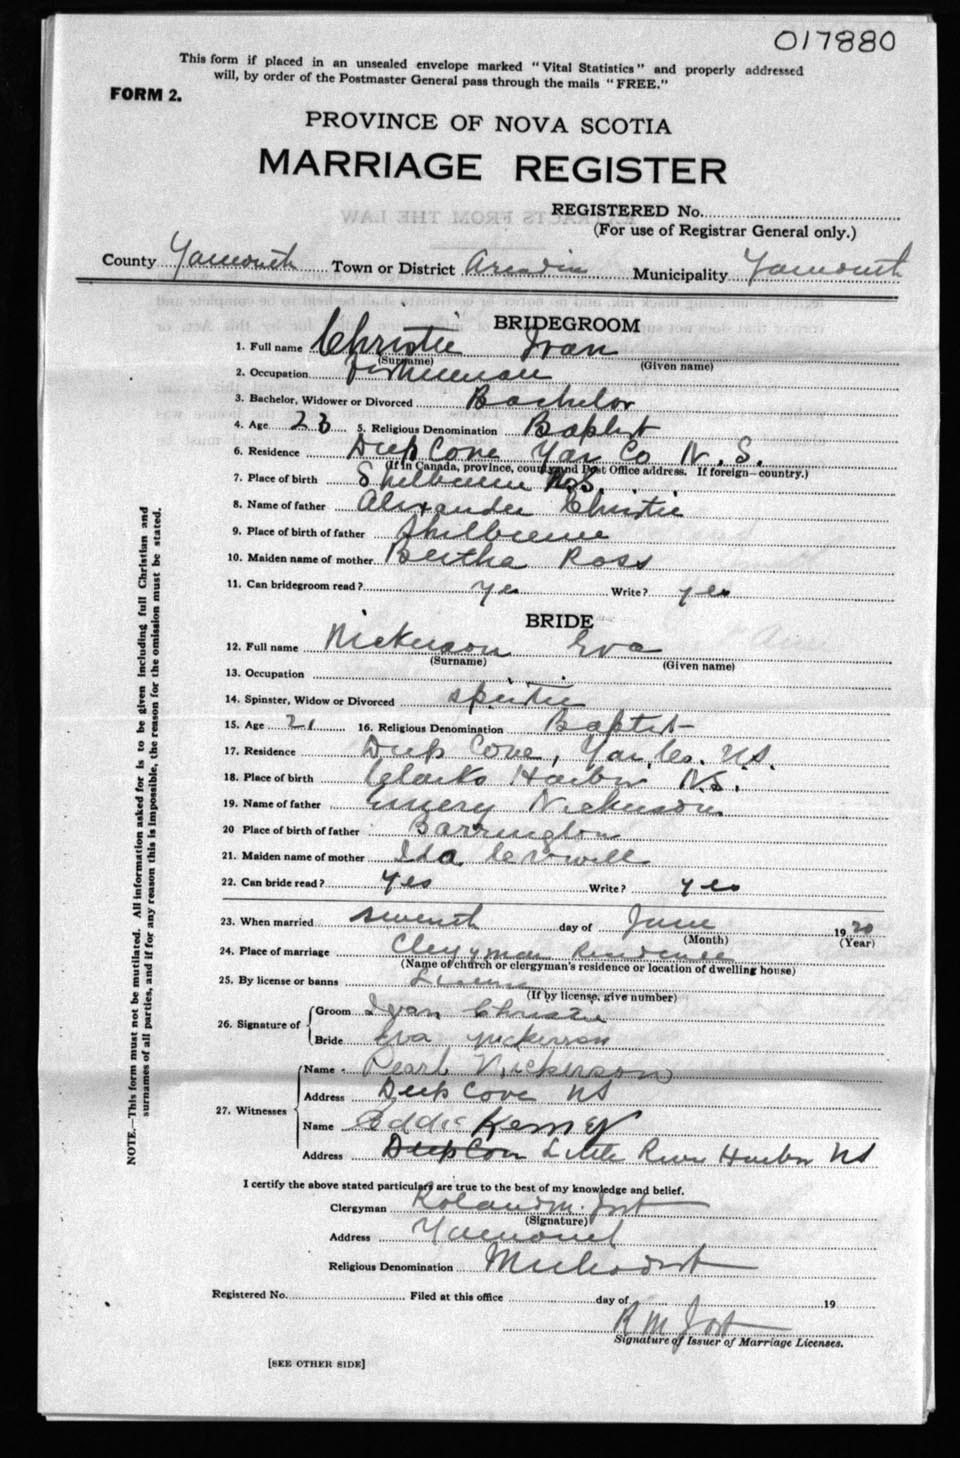 017880
This form if placed in an unsealed envelope marked "Vital Statistics" and properly addressed
will, by order of the Postmaster General pass through the mails "FREE."
FORM 2.
PROVINCE OF NOVA SCOTIA
MARRIAGE REGISTER
REGISTERED No.
(For use of Registrar General only.)
County Yarmouth Town or District Arcadia Municipality Yarmouth
BRIDEGROOM
1. Full name Christie Ivan
(Surname) (Given name)
2. Occupation fisherman
3. Bachelor, Widower or Divorced Bachelor
4. Age 23 5. Religious Denomination Baptist
6. Residence Deep Cove Yar Co N.S.
(If in Canada, province, county and Post Office address. If foreign—country.)
7. Place of birth Shelburne N.S.
8. Name of father Alexander Christie
9. Place of birth of father Shelburne
10. Maiden name of mother Bertha Ross
11. Can bridegroom read? yes Write? yes
BRIDE
12. Full name Nickerson Eva
(Surname) (Given name)
13. Occupation
14. Spinster, Widow or Divorced
15. Age 21 16. Religious Denomination Baptist
17. Residence Deep Cove, Yar. Co. N.S.
18. Place of birth Clarks Harbor N.S.
19. Name of father Emery Nickerson
20 Place of birth of father Barrington
21. Maiden name of mother Ida Crowell
22. Can bride read? yes Write? yes
23. When married seventh day of June 1920
(Month) (Year)
24. Place of marriage Clergyman Residence
(Name of church or clergyman's residence or location of dwelling house)
25. By license or banns License
(If by license, give number)
26. Signature of Groom Ivan Christie
Bride Eva Nickerson
27. Witnesses
Name Pearl Nickerson
Address Deep Cove NS
Name Eddie Kenney
Address Deep Cove Little River Harbor NS
I certify the above stated particulars are true to the best of my knowledge and belief.
Clergyman Roland M. Jost
(Signature)
Address Yarmouth
Religious Denomination Methodist
Registered No. Filed at this office day of 19
R M Jost
Signature of Issuer of Marriage Licenses.
[SEE OTHER SIDE]
NOTE.—This form must not be mutilated. All information asked for is to be given including full Christian and
surnames of all parties, and if for any reason this is impossible, the reason for the omission must be stated.